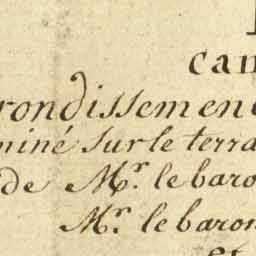 can
rondissemen
miné sur le terra
de Mr. le baro
Mr. le baron
et